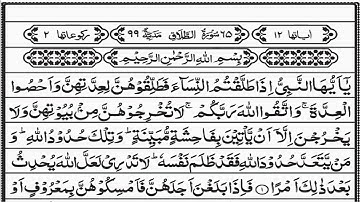 اٰیاتها ۱۲ ۶۵ سُوْرَةُ الطَّلَاقِ مَدَنِيَّةٌ ۹۹ رکوعاتها ۲
بِسْمِ اللّٰهِ الرَّحْمٰنِ الرَّحِيْمِ
يٰٓاَيُّهَا النَّبِيُّ اِذَا طَلَّقْتُمُ النِّسَآءَ فَطَلِّقُوْهُنَّ لِعِدَّتِهِنَّ وَاَحْصُوا
الْعِدَّةَ ۚ وَاتَّقُوا اللّٰهَ رَبَّكُمْ ۚ لَا تُخْرِجُوْهُنَّ مِنْۢ بُيُوْتِهِنَّ وَلَا
يَخْرُجْنَ اِلَّآ اَنْ يَّاْتِيْنَ بِفَاحِشَةٍ مُّبَيِّنَةٍ ؕ وَتِلْكَ حُدُوْدُ اللّٰهِ ؕ وَ
مَنْ يَّتَعَدَّ حُدُوْدَ اللّٰهِ فَقَدْ ظَلَمَ نَفْسَهٗ ؕ لَا تَدْرِيْ لَعَلَّ اللّٰهَ يُحْدِثُ
بَعْدَ ذٰلِكَ اَمْرًا ۝۱ فَاِذَا بَلَغْنَ اَجَلَهُنَّ فَاَمْسِكُوْهُنَّ بِمَعْرُوْفٍ اَوْ